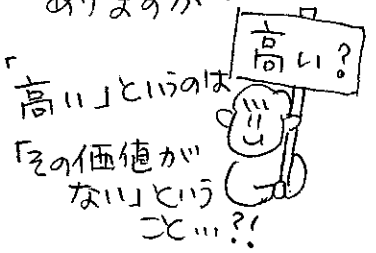 ありますか
高い?
「高い」というのは
「その価値が
ない」という
こと…?!